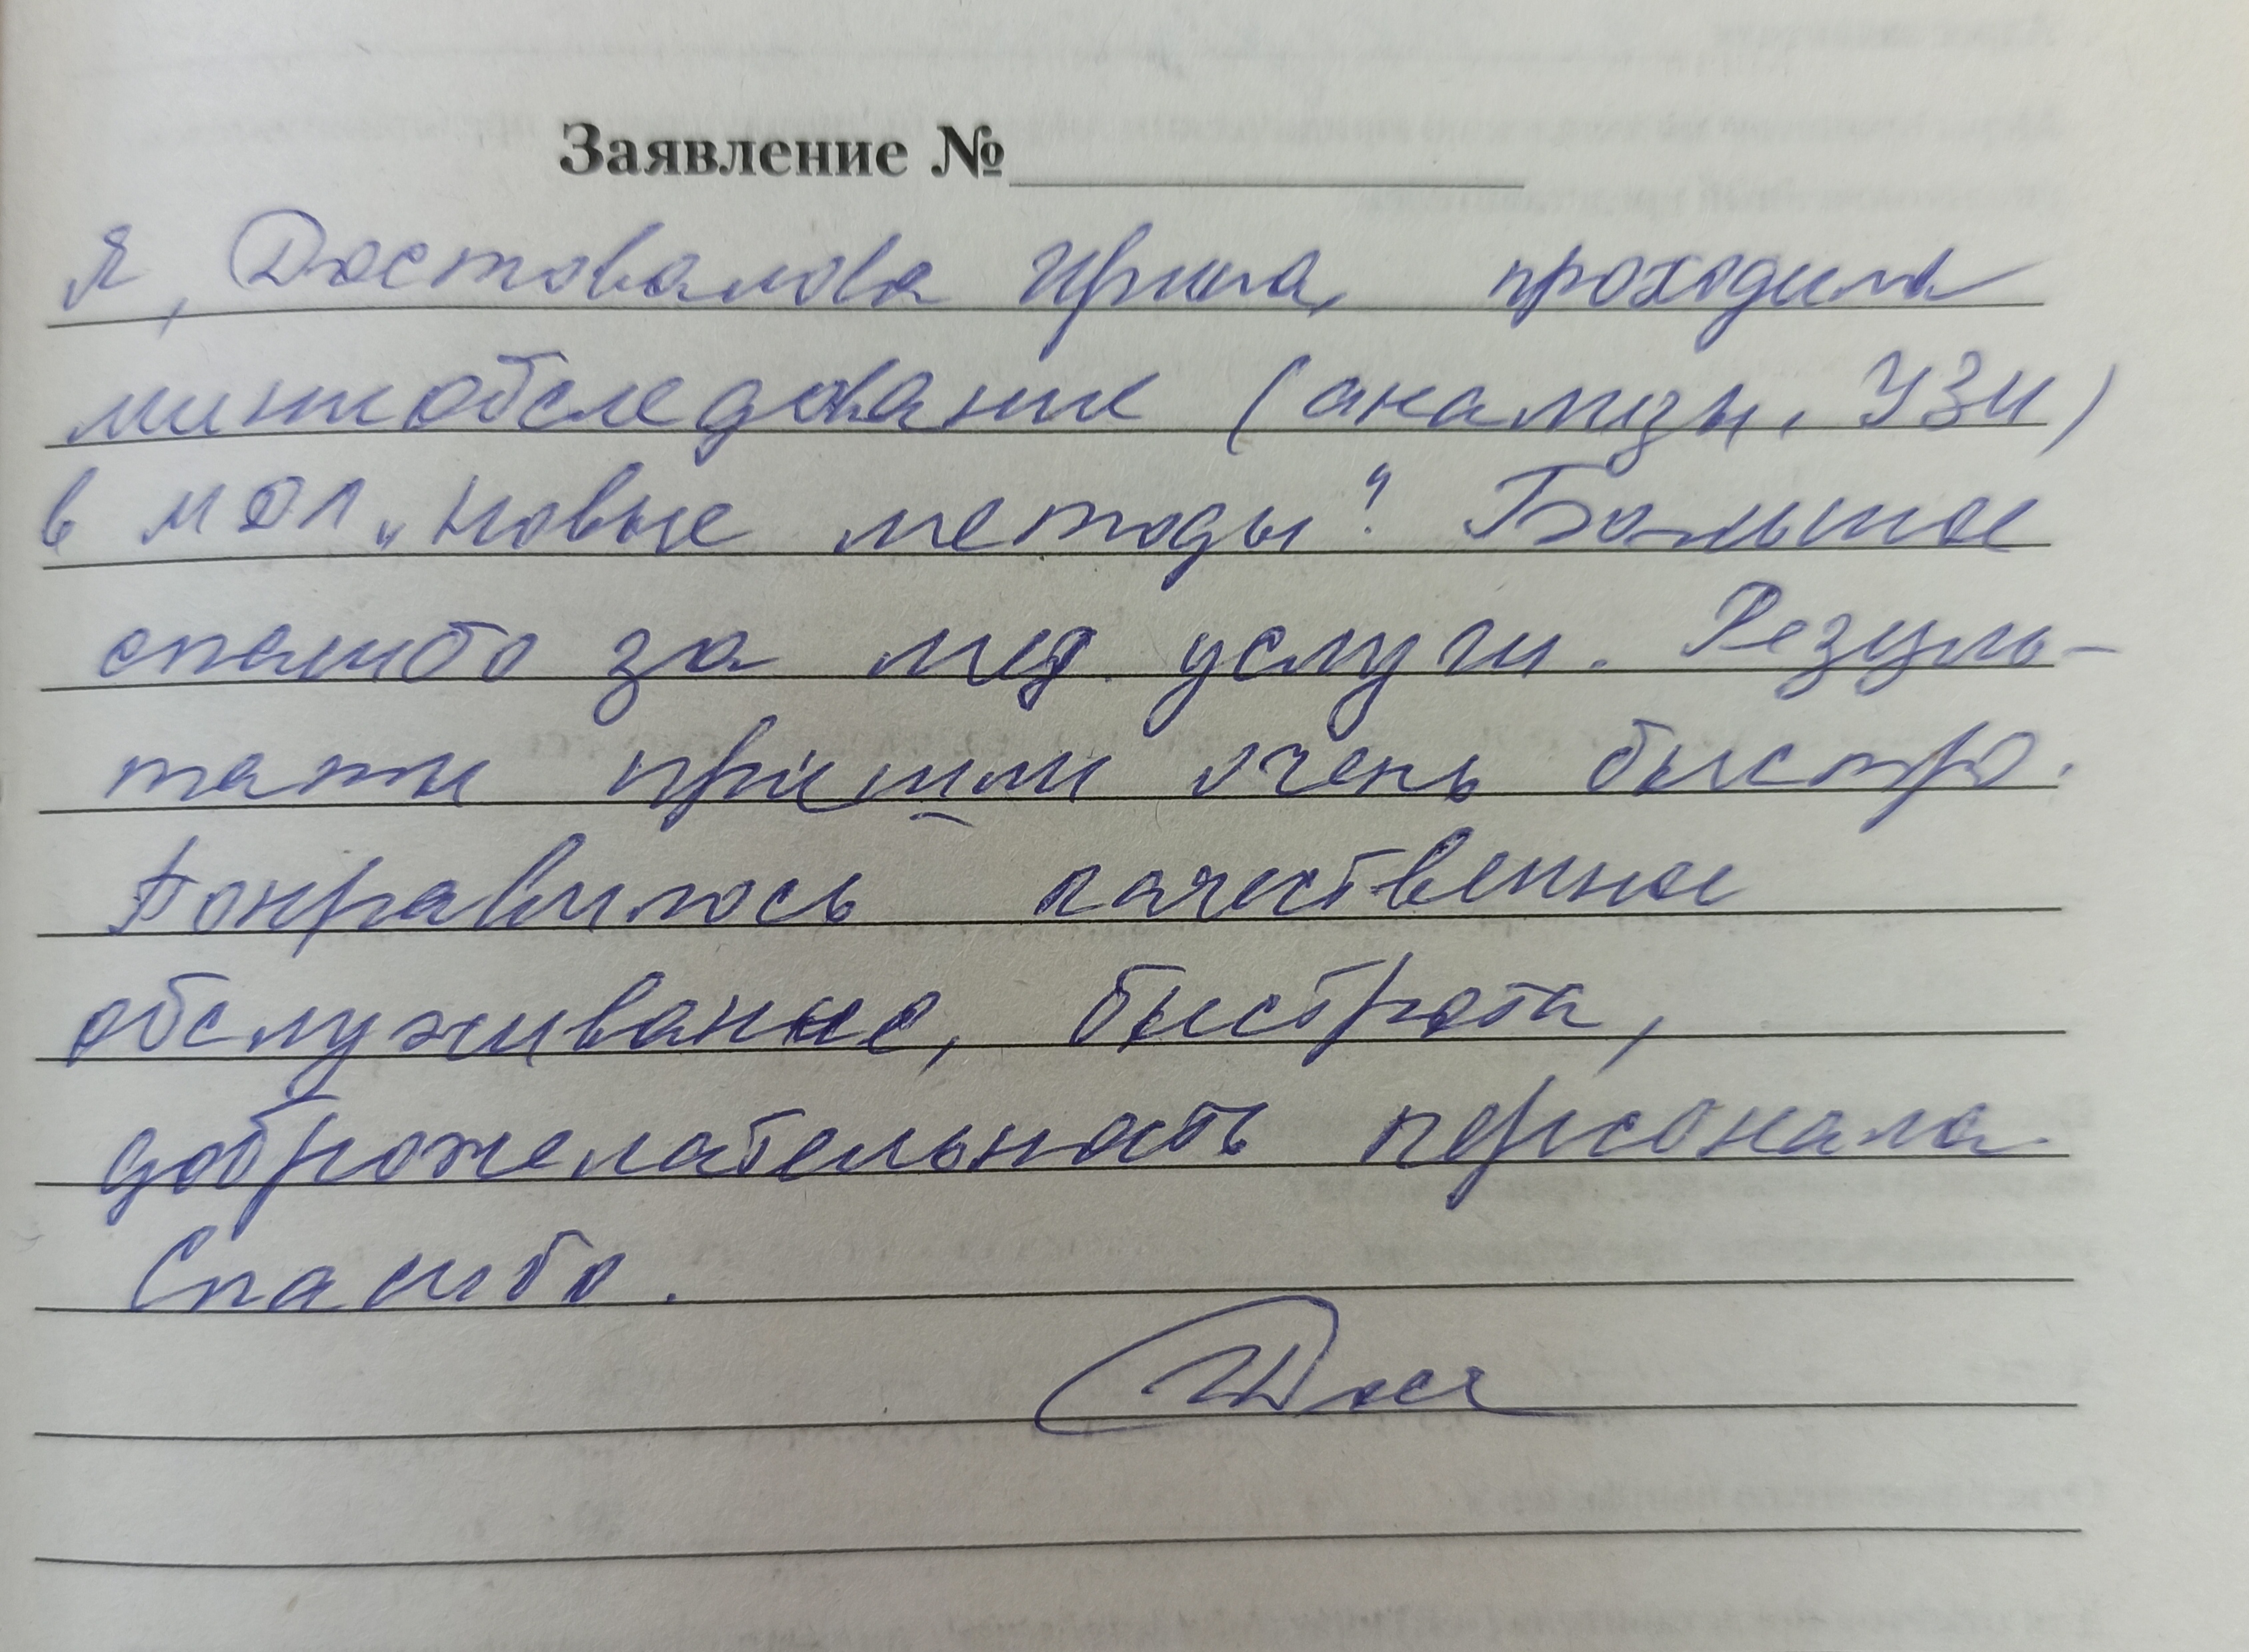 Заявление №
Я, Достовалова Ирина, проходила
минтобследование (анализы, УЗИ)
в МДЛ „Новые методы". Большое
спасибо за мед. услуги. Резуль-
таты пришли очень быстро.
Понравилось качественное
обслуживание, быстрота,
доброжелательность персонала.
Спасибо.